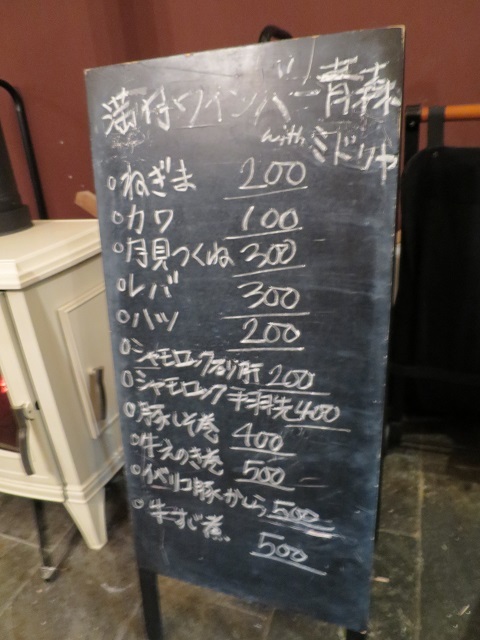 ワインバー青森
with ミドリヤ
ねぎま 200
カワ 100
月見つくね 300
レバ 300
ハツ 200
シャモロック砂肝 200
シャモロック手羽先 400
豚しそ巻 400
牛えのき巻 500
イベリコ豚かしら 500
牛すじ煮 500